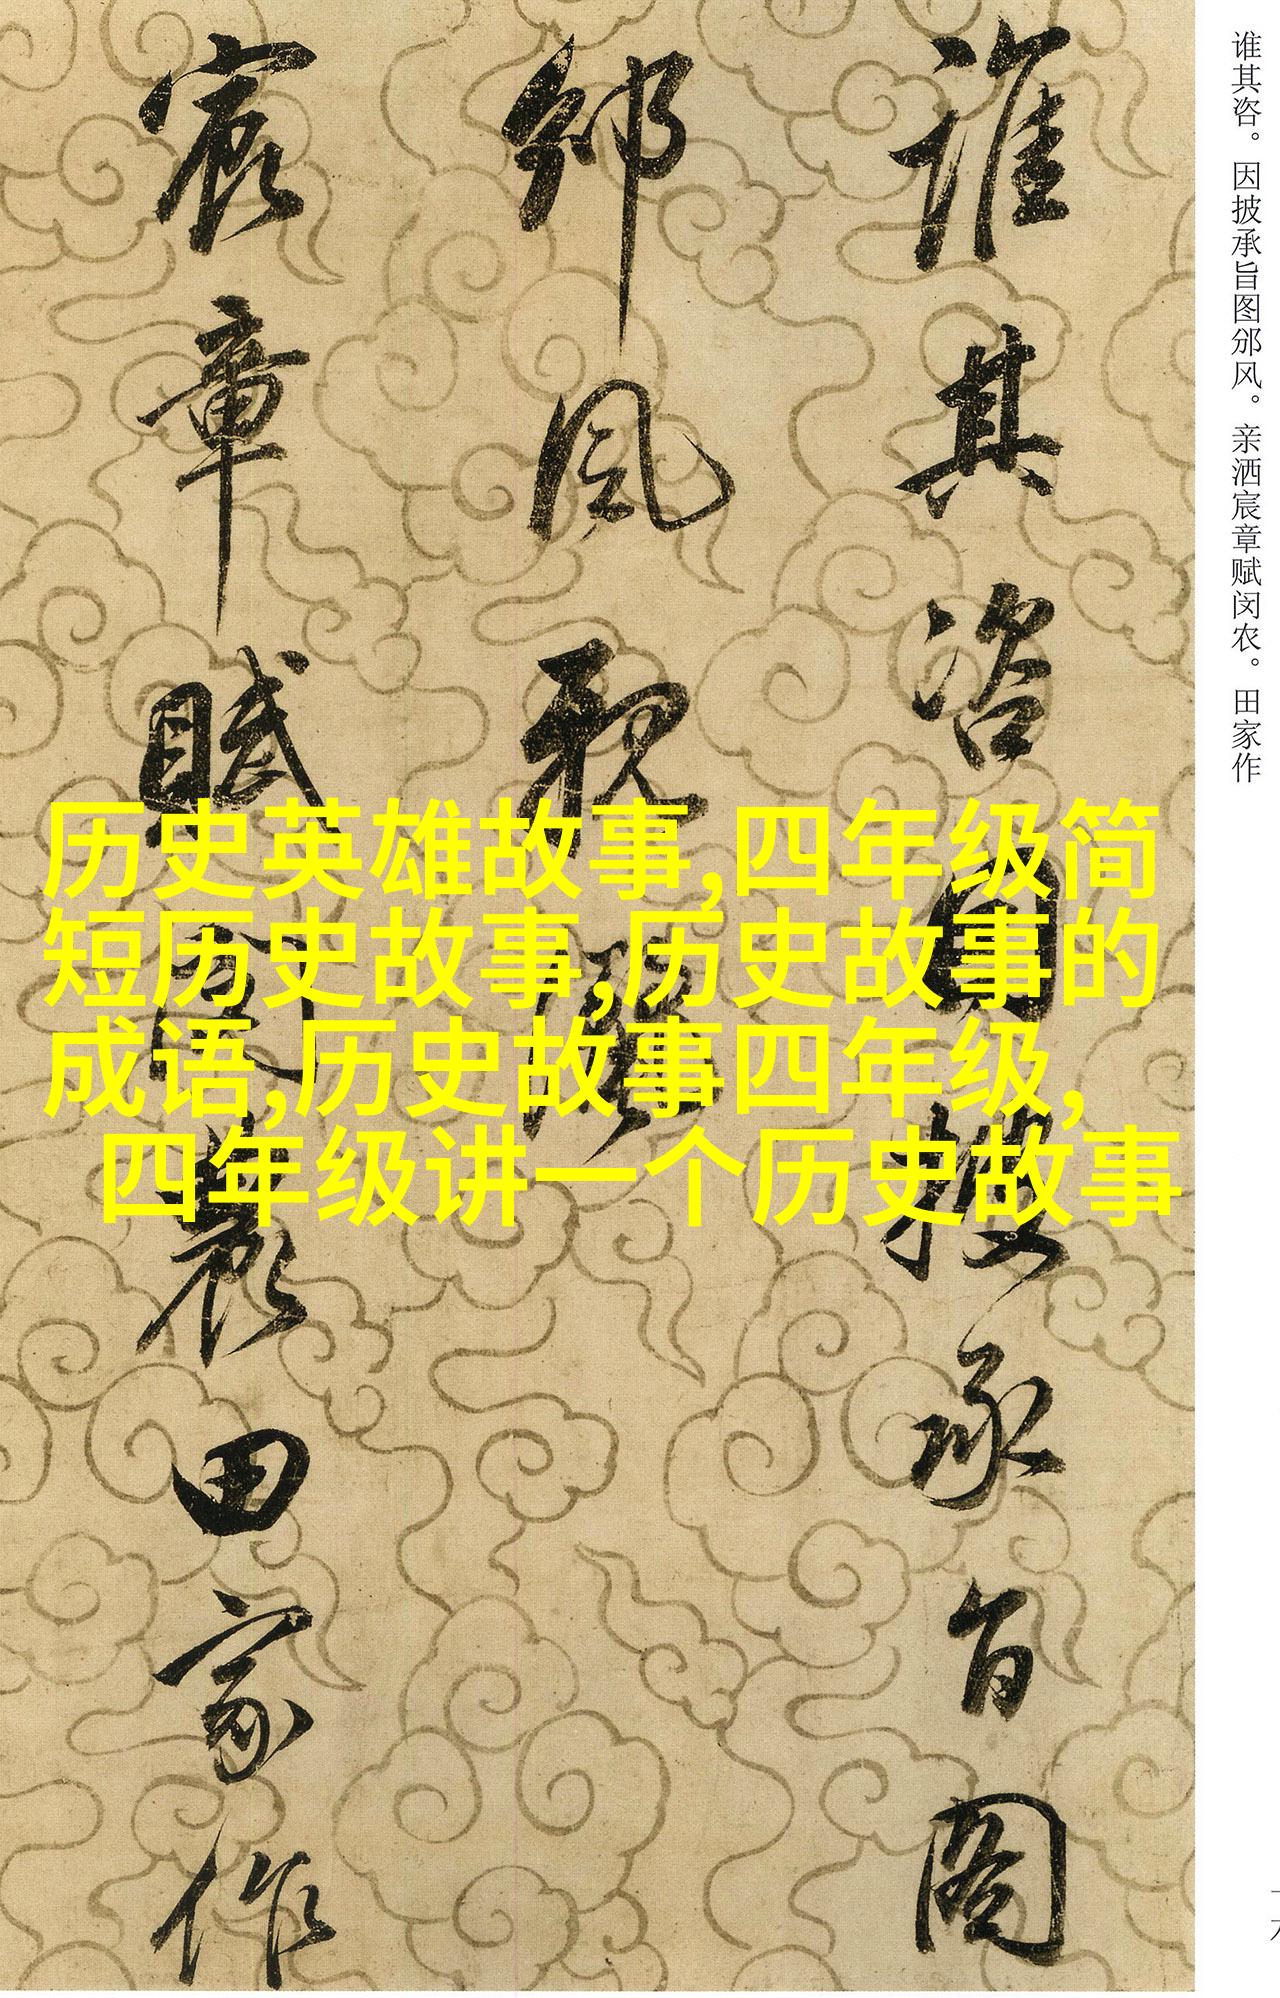 谁其咨。因披承旨图邠风。亲洒宸章赋闵农。田家作
誰其咨因披承旨圖
邠風親灑
宸章賦閔農田家作
历史英雄故事,四年级简
短历史故事,历史故事的
成语,历史故事四年级,
四年级讲一个历史故事